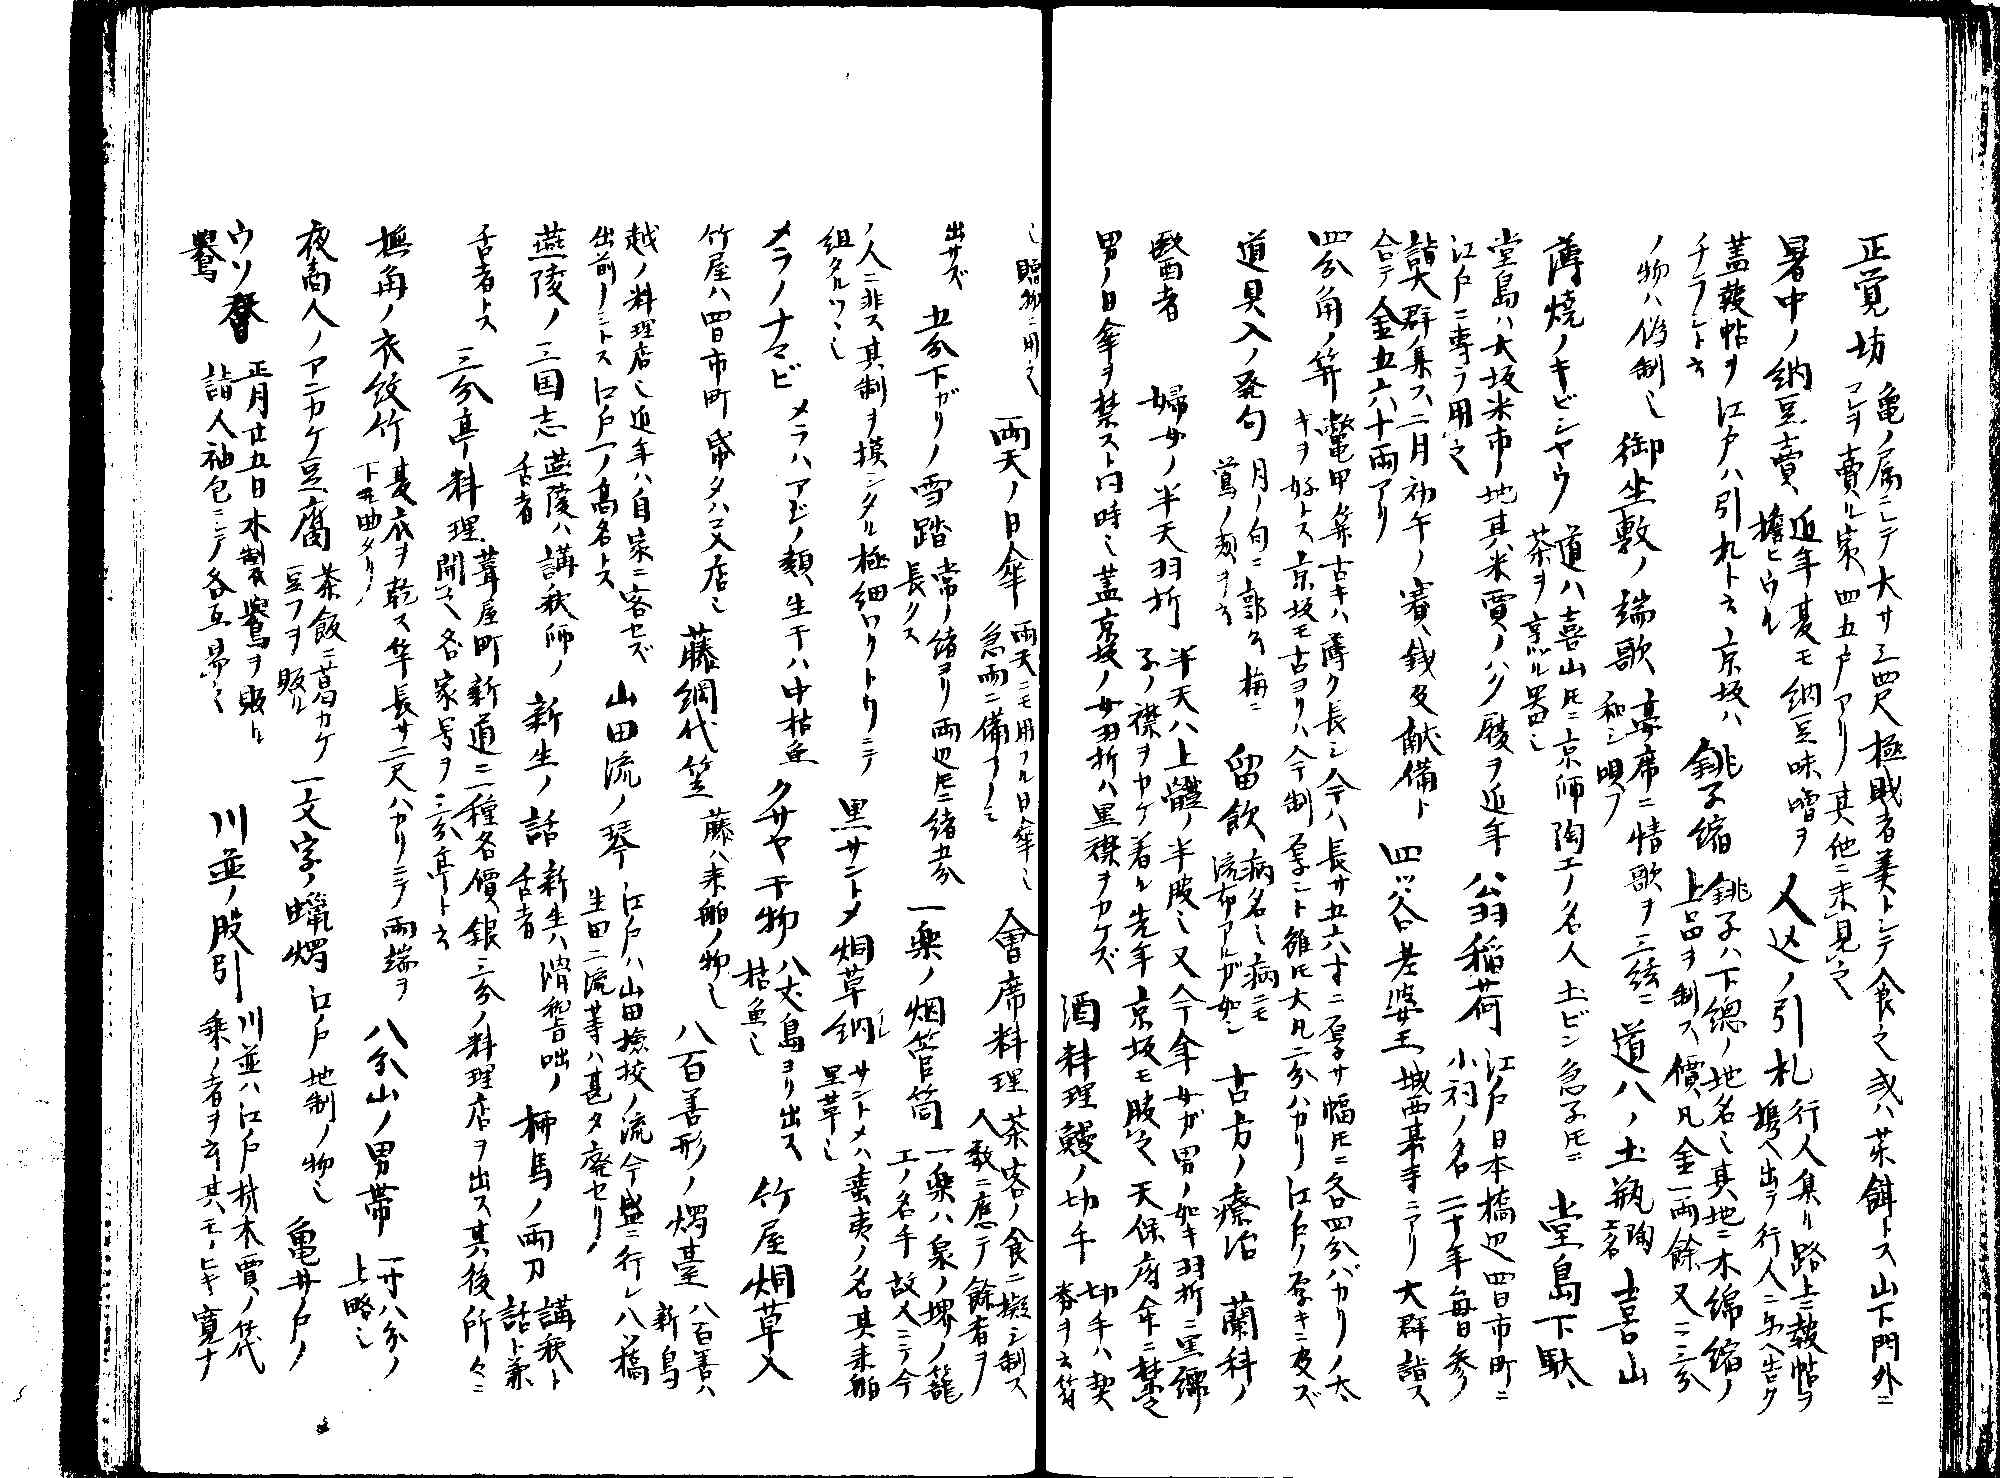 正覚坊 亀ノ属ニシテ大サ三四尺極賎者羹トシテ食之或ハ茶餌トス山下門外ニ
コレヲ賣ル家四五戸アリ其他ニ未見之
暑中ノ納豆賣 近年夏モ納豆味噌ヲ
擔ヒウル
人込ノ引札 行人集ル路上ニ報帖ヲ
携ヘ出テ行人ニ与ヘ告ク
蓋報帖ヲ江戸ハ引札ト云京坂ハ
チラシト云
銚子縮 銚子ハ下總ノ地名也其地ニ木綿縮ノ
上品ヲ制ス價凡金一両餘又二三分
ノ物ハ偽制也
御坐敷ノ端歌 宴席ニ情歌ヲ三絃ニ
和シ唄フ
道八ノ土瓶 陶工名 喜山
薄焼ノキビシヤウ 道八喜山トモニ京師陶工ノ名人土ビン急子トモニ
茶ヲ烹ル器也
堂島下駄
堂島ハ大坂米市ノ地其米賈ノハク屐ヲ近年
江戸ニ專ラ用之
翁稲荷 江戸日本橋辺四日市町ニ
小祠ノ名二十年毎日参
詣大群ノ集ス二月初午ノ賽銭及献備ト
合テ金五六十両アリ
四ツ谷老婆王 城西某寺ニアリ大群詣ス
四分角ノ笄 鼈甲笄古キハ薄ク長シ今ハ長サ五六寸ニ厚サ幅トモニ各四分バカリノ太
キヲ好トス京坂モ古ヨリハ今制厚シト雖トモ大凡二分ハカリ江戸ノ厚キニ及ズ
道具入ノ発句 月ノ句ニ郭公梅ニ
鶯ノ類ヲ云
留飲 病名也病ニモ
流布アルガ如シ
古方ノ療治 蘭科ノ
醫者
婦女ノ半天羽折 半天ハ上體ノ半服也又今年女ガ男ノ如キ羽折ニ黒繻
子ノ襟ヲカケ着ル先年京坂モ服之天保府命ニ禁之
男ノ日傘ヲ禁スト同時也蓋京坂ノ女羽折ハ黒襟ヲカケズ
酒料理鰻ノ切手 切手ハ契
券ヲ云音
シ贈物ニ用之
雨天ノ日傘 雨天ニモ用フル日傘也
急雨ニ備フル也
會席料理 茶客ノ食ニ擬シ制ス
人数ニ應テ餘肴ヲ
出サズ
五分下ガリノ雪踏 常ノ緒ヨリ両辺トモニ緒五分
長クス
一楽ノ烟管筒 一楽ハ泉ノ堺ノ籠
工ノ名手故人ニテ今
ノ人ニ非ス其制ヲ摸シタル極細ロクトウニテ
組タルツヽ也
黒サントメ烟草納レ サントメハ蛮夷ノ名其来舶
黒革也
メラノナマビ メラハアジノ類生干ハ中枯魚
クサヤ干物 八丈島ヨリ出ス
枯魚也
竹屋烟草入
竹屋ハ四日市町帋タハコ入店也
藤綱代笠 藤ハ来舶ノ物也
八百善形ノ燭臺 八百善ハ
新鳥
越ノ料理店也近年ハ自家ニ客セズ
出前ノミトス江戸一ノ高名トス
山田流ノ琴 江戸ハ山田撿挍ノ流今盛ニ行レ八橋
生田二流等ハ甚タ廃セリ
燕陵ノ三国志 燕陵ハ講釈師ノ
舌者
新生ノ話 新生ハ滑稽咄ノ
舌者
柳馬ノ両刀 講釈ト
話ト兼
舌者トス
三分亭料理 葺屋町新道ニ二種各價銀三分ノ料理店ヲ出ス其後所々ニ
開之各家号ヲ三分亭ト云
撫角ノ衣紋竹 夏衣ヲ乾ス竿長サ二尺ハカリニテ両端ヲ
下エ曲タリ
八分山ノ男帯 一寸八分ノ
上略也
夜商人ノアンカケ豆腐 茶飯ニ葛カケ
豆フヲ販ル
一文字ノ蠟燭 江戸地制ノ物也
亀井戸ノ
ウソ替 正月廿五日木製鷽ヲ販ル
鷽 詣人袖包ニテ各互易之
川並ノ股引 川並ハ江戸材木賈ノ筏
乗ノ者ヲ云其モヽヒキ寛ナ